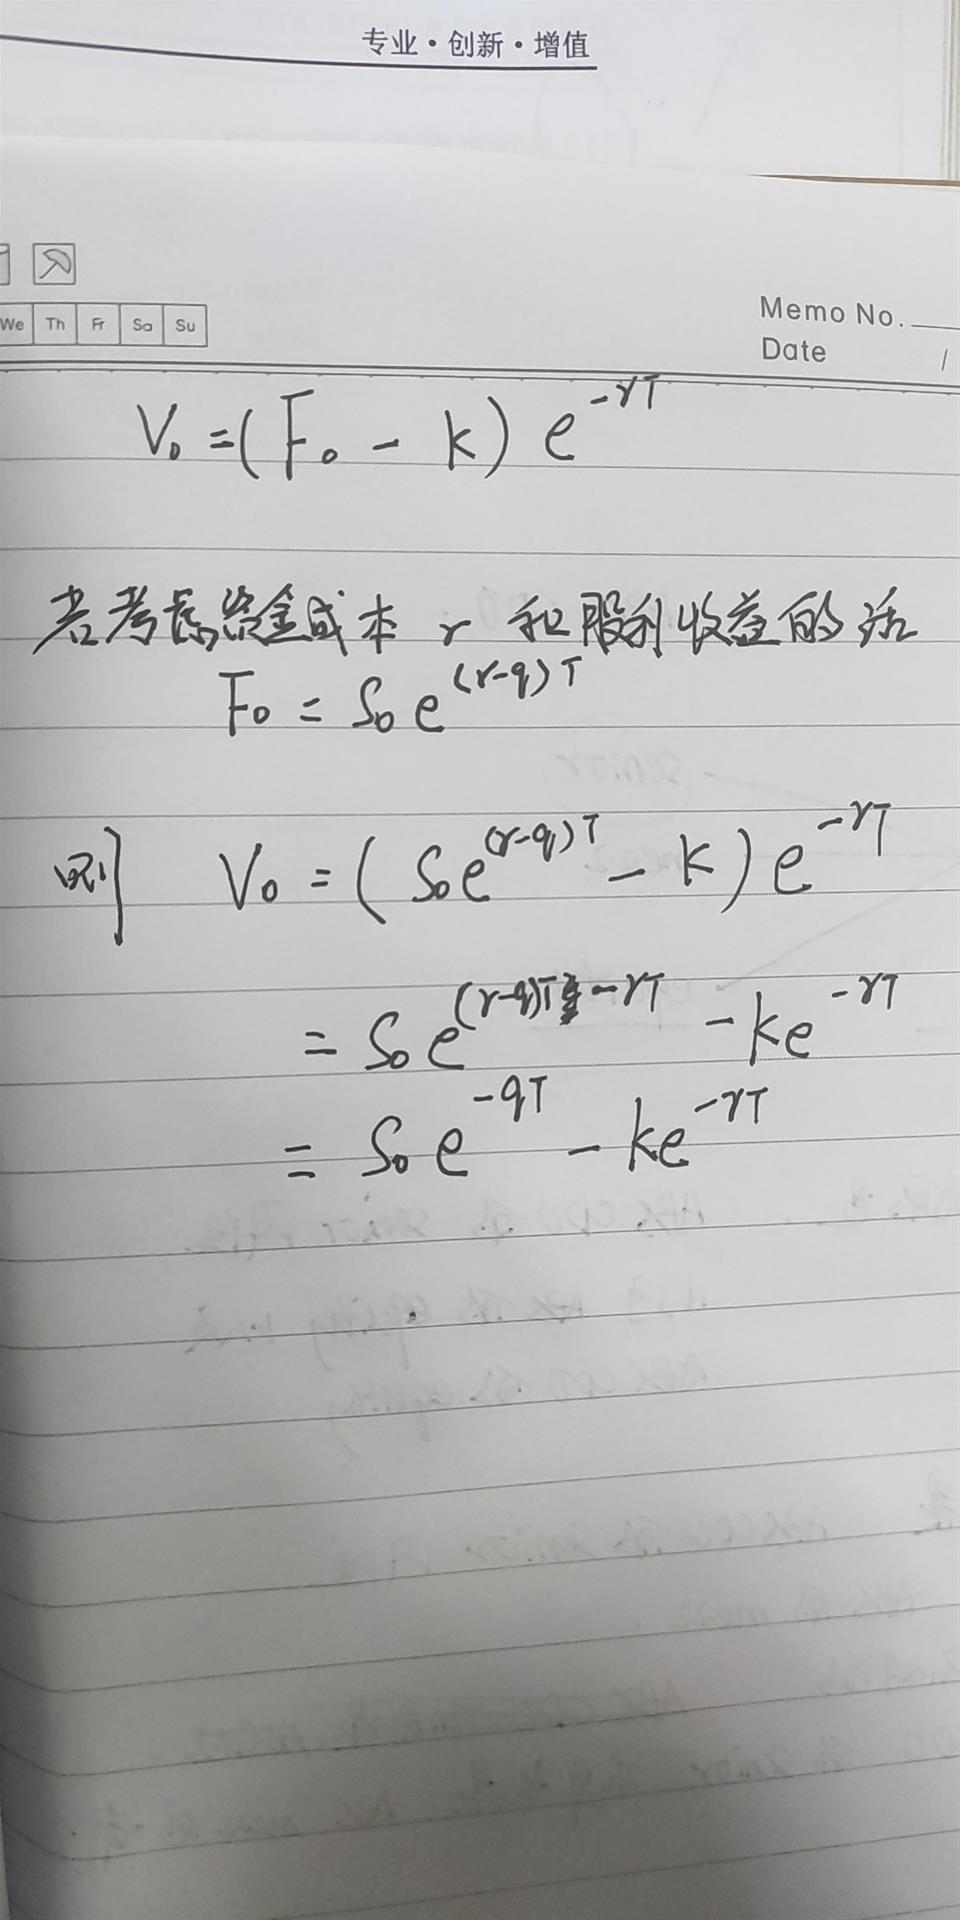 专业·创新·增值
We Th Fr Sa Su
Memo No.
Date /
V₀ = (F₀ - k) e^{-rT}
若考虑资金成本 r 和股利收益的话
F₀ = S₀ e^{(r-q)T}
则 V₀ = (S₀e^{(r-q)T} - k) e^{-rT}
= S₀ e^{(r-q)T - rT} - ke^{-rT}
= S₀ e^{-qT} - ke^{-rT}